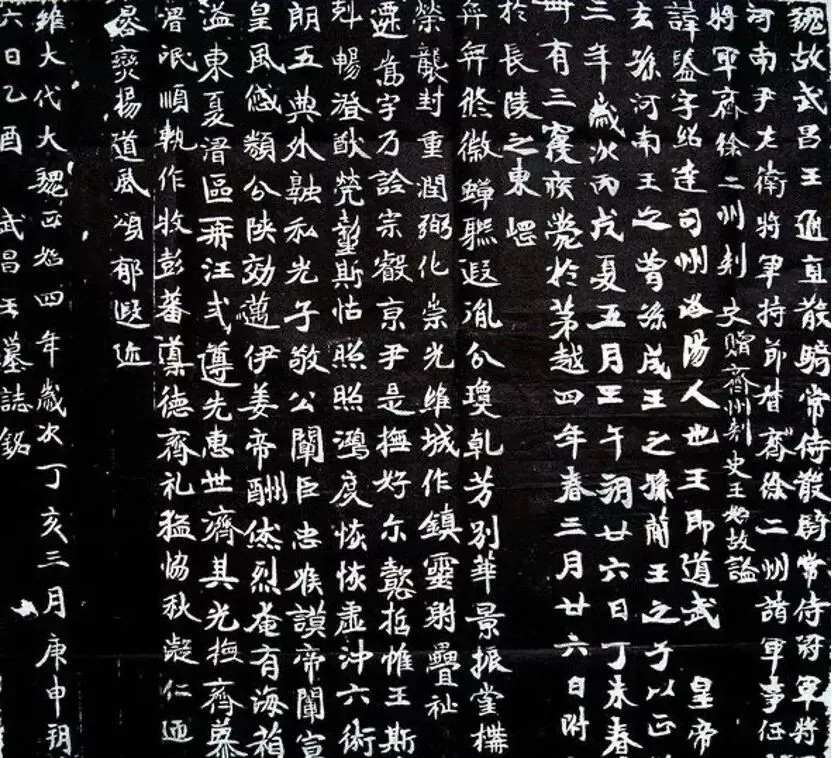 魏故武昌王通直散騎常侍散騎常侍冠軍將
河南尹左衛將軍持節督齊徐二州諸軍事征
將軍齊徐二州刺史贈齊州刺史王如故謚
諱鑒字紹達司州洛陽人也王即道武 皇帝
玄孫河南王之曾孫成王之孫簡王之子以正
三年歲次丙戌夏五月壬午朔廿六日丁未春
卌有三寢疾薨於第越四年春三月廿六日附
於長陵之東堐
弈弈徽蟬聯遐胤分瓊乹芳別華景振堂構
榮襲封重潤弼化崇光維城作鎮靈射疊祉
遷嵩宇乃詮宗叡京尹是撫好尒懿哲惟王斯
剋暢澄猷煢斯怙照照鴻度恢恢虛沖六術
朗五典外融私光子敬公闡臣忠唯謨帝闡宣
皇風悠類公陝効邁伊姜帝酬烈奄有海葙
溢東夏區再汪式遵先惠世濟其光撫齊慕
氓順軌作牧彭蕃導德齊礼猛協秋凝仁迊
爕揚道風頌郁遐迩
維大代大魏正始四年歲次丁亥三月庚申朔
六日乙酉 武昌王墓誌銘